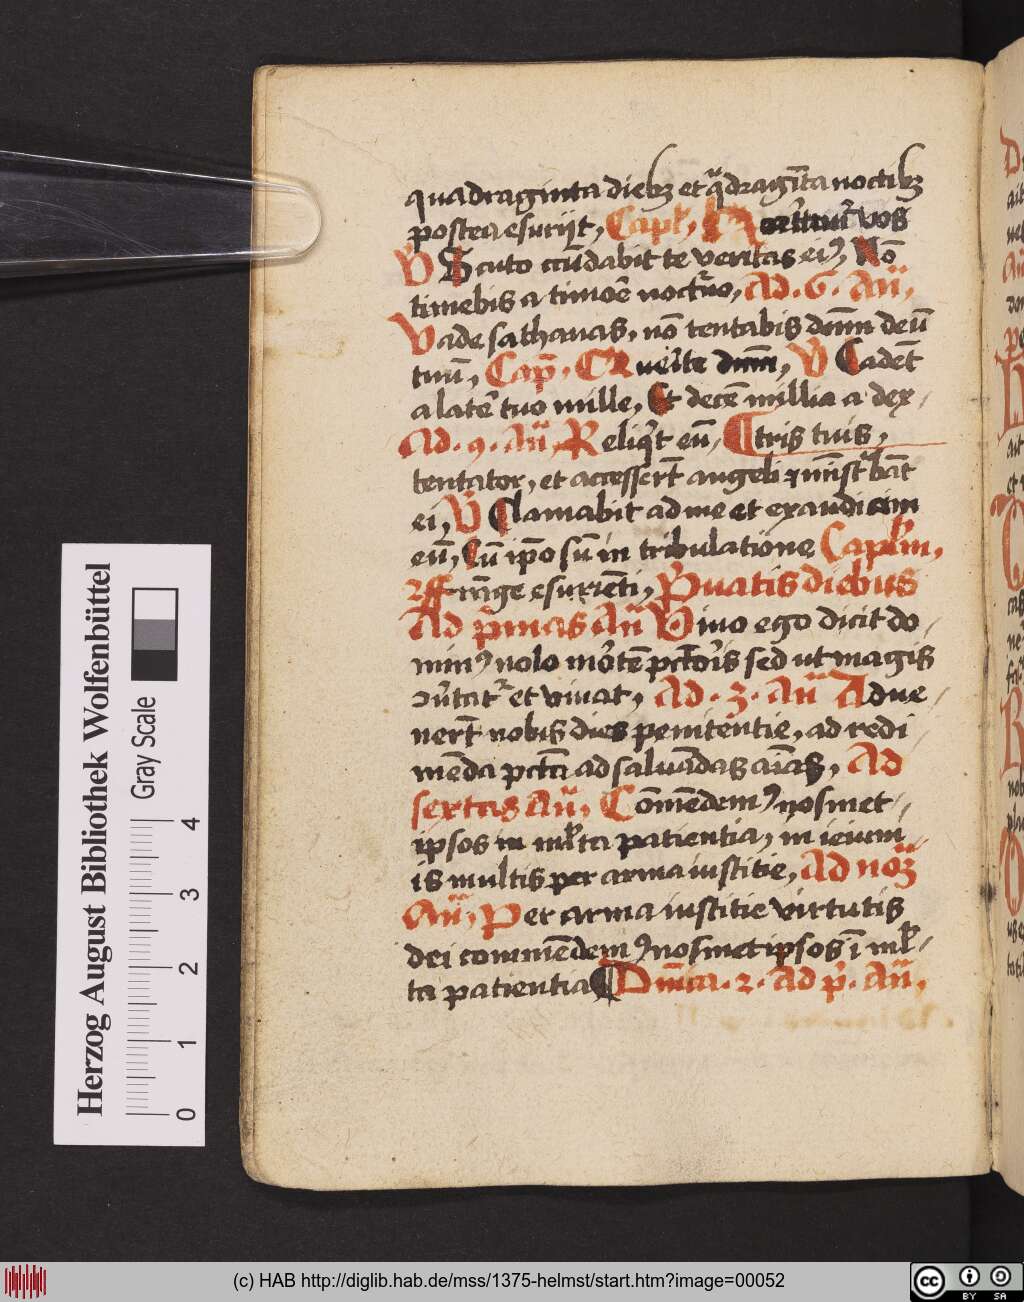 quadraginta dieb⁊ et q̄dragīta noctib⁊
postea esurijt, Capl', vos
V Scuto cc̄ūdabit te veritas ei⁹, Nō
timebis a timoē noct'no, Ad . 6 . Añ,
Vade sathanas, nō tentabis dnm̄ deū
tuū, Cap̄, Q V Cadēt
a latē tuo mille, Et decē millia a dex,
Ad . 9 . Añ, Reliq't eū, ¶tris tuis,
tentator, et accesserūt angeli ⁊ mīst'bāt
ei, V Clamabit ad me et exaudiam
eū, Cū ip̄o sū in tribulatione, Capl'm,
Frāge esuriēti, P'uatis diebus
Ad p'mas Añ Vivo ego dicit do,
min⁹ nolo mōtē pctōis sed ut magis
ↄūtat' et vivat, Ad . 3 . Añ Adve,
nerūt nobis dies penitentie, ad redi
mēda pctā ad saluādas aīas, Ad
sextas Añ, Cōmēdem⁹ nosmet,
ipsos in ml'ta patientia, in ieiuni,
is multis per arma iustitie, Ad noā
Añ, Per arma iustitie virtutis
dei commēdem⁹ nosmetipsos ī ml',
ta patientia ¶Dn̄ica . 2 . Ad p' . Añ,
Herzog August Bibliothek Wolfenbüttel
Gray Scale
0 1 2 3 4
(c) HAB http://diglib.hab.de/mss/1375-helmst/start.htm?image=00052
cc BY SA